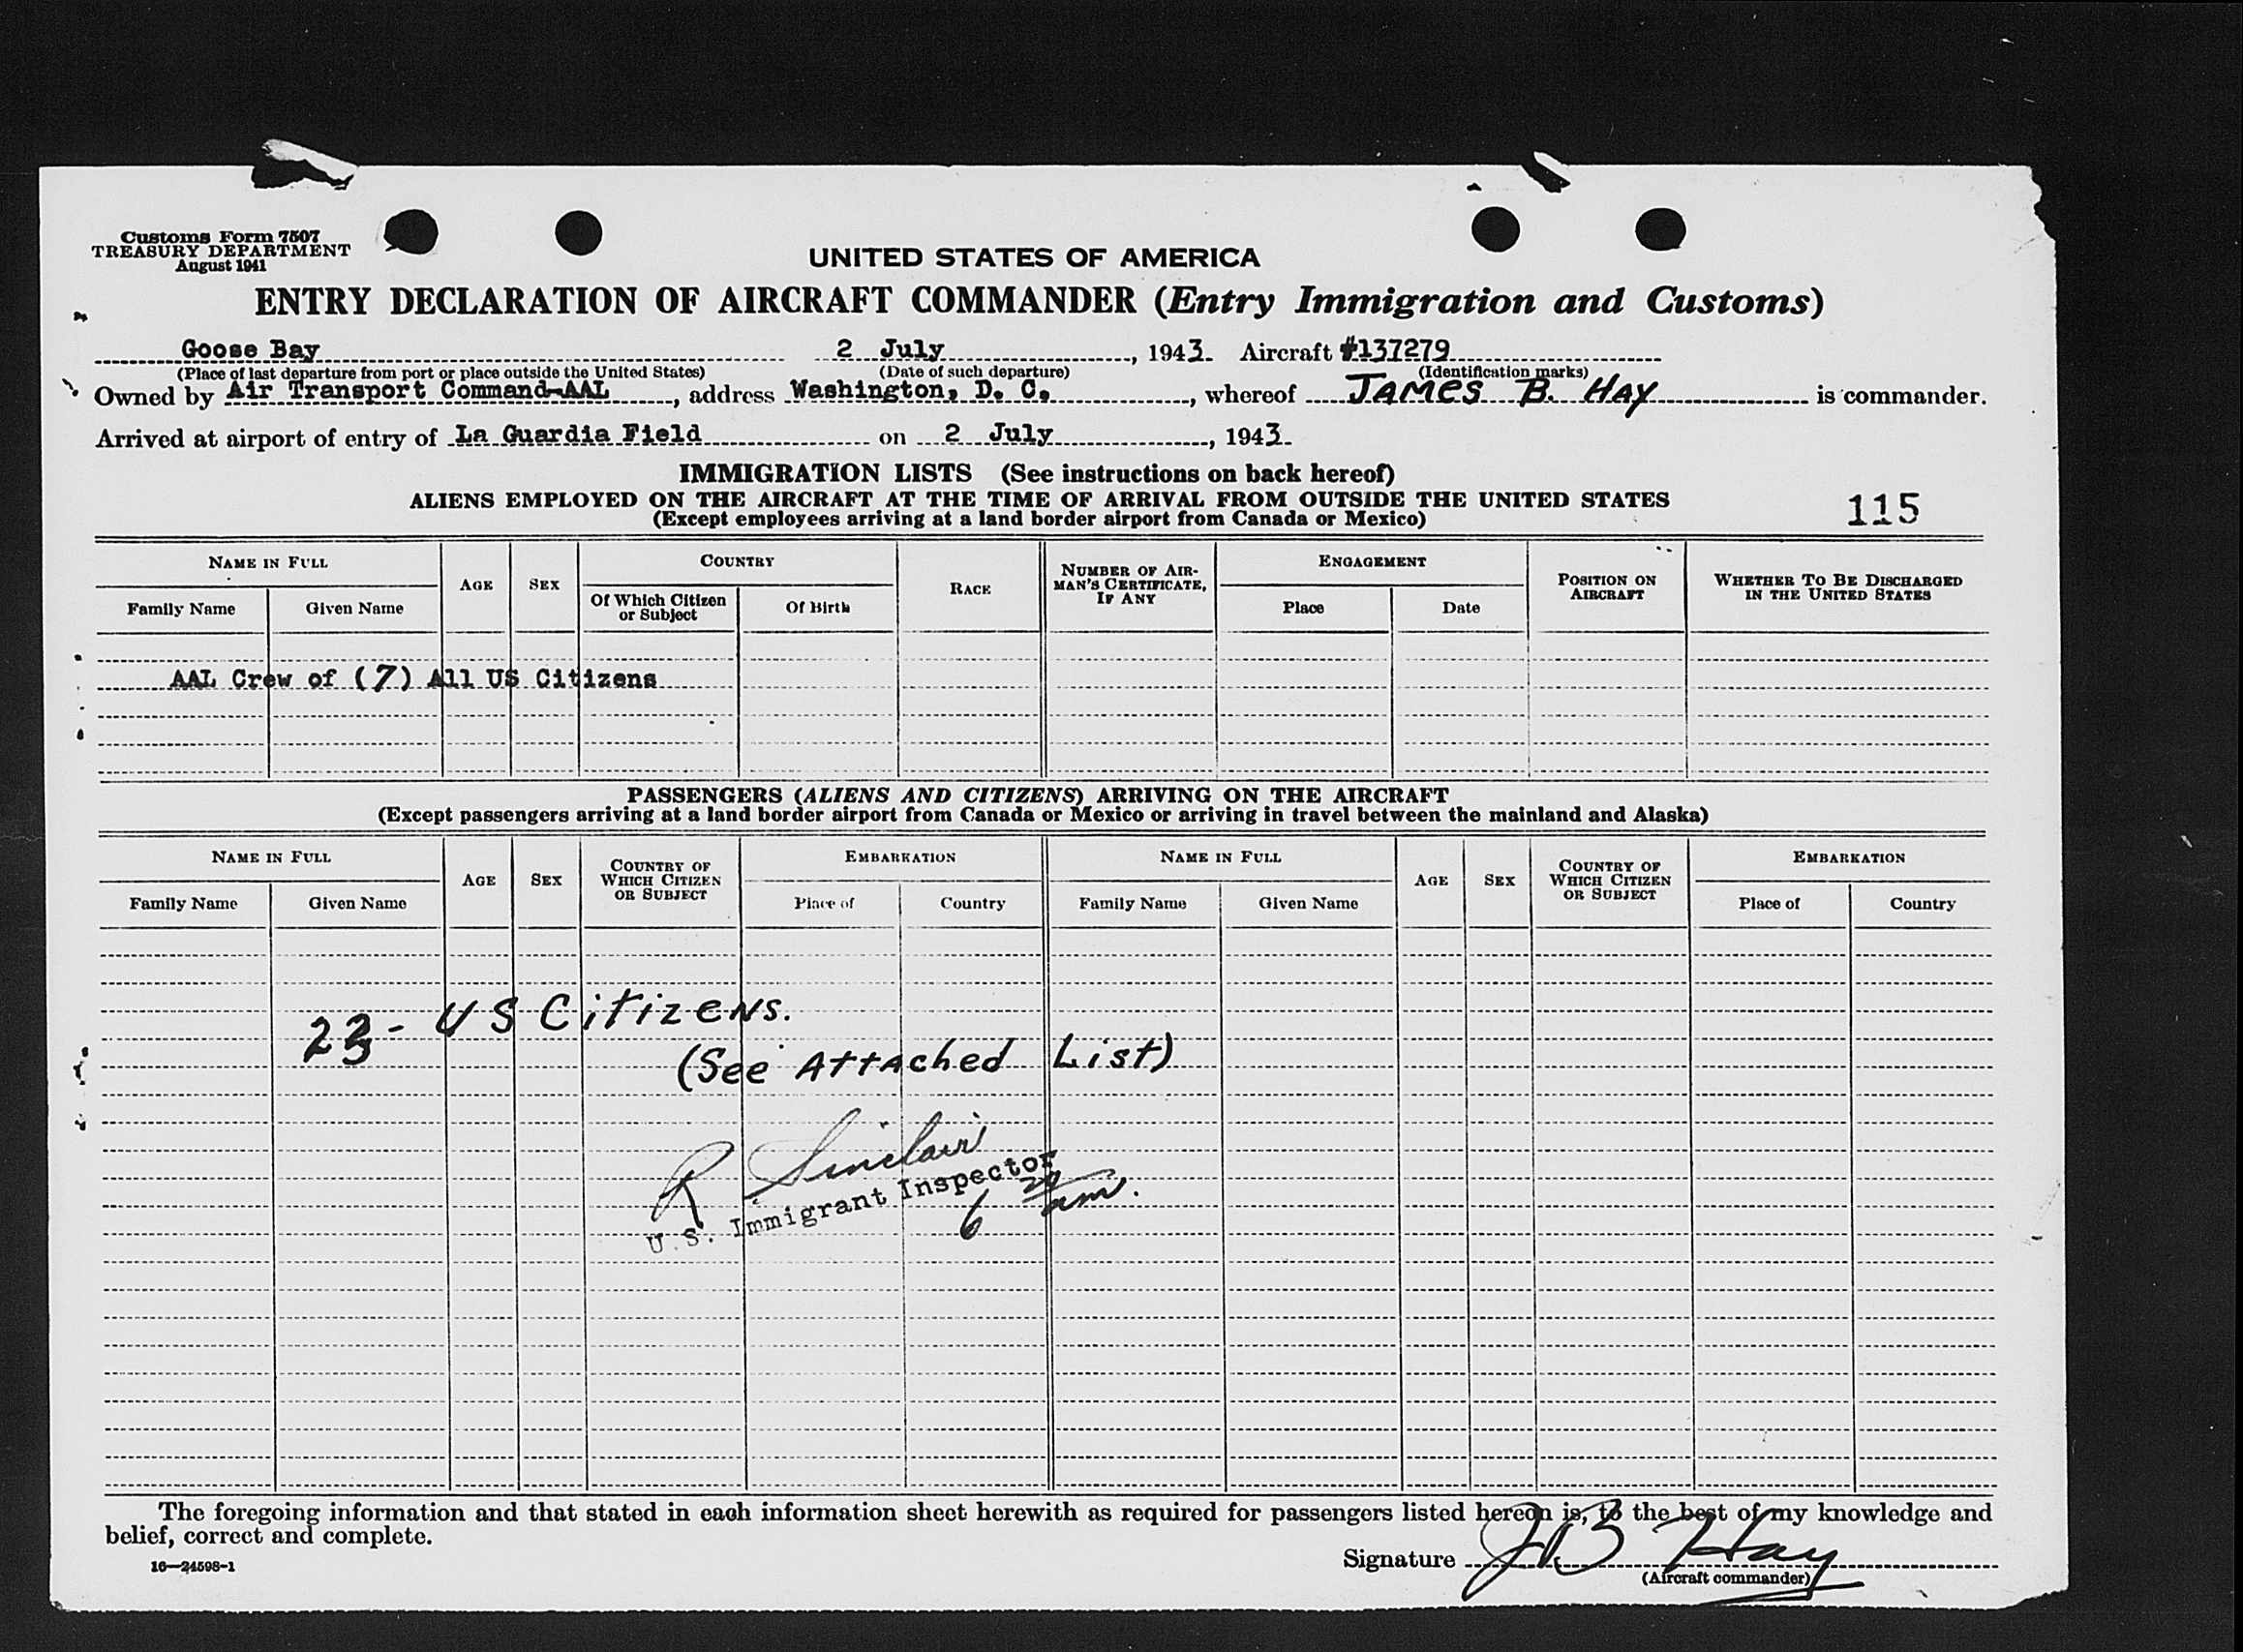 Customs Form 7507
TREASURY DEPARTMENT
August 1941
UNITED STATES OF AMERICA
ENTRY DECLARATION OF AIRCRAFT COMMANDER (Entry Immigration and Customs)
Goose Bay 2 July, 1943. Aircraft #137279
(Place of last departure from port or place outside the United States) (Date of such departure) (Identification marks)
Owned by Air Transport Command-AAL, address Washington, D. C., whereof JAMES B. HAY is commander.
Arrived at airport of entry of La Guardia Field on 2 July, 1943.
IMMIGRATION LISTS (See instructions on back hereof)
ALIENS EMPLOYED ON THE AIRCRAFT AT THE TIME OF ARRIVAL FROM OUTSIDE THE UNITED STATES
(Except employees arriving at a land border airport from Canada or Mexico)
115
NAME IN FULL AGE SEX COUNTRY RACE NUMBER OF AIR-MAN'S CERTIFICATE, IF ANY ENGAGEMENT POSITION ON AIRCRAFT WHETHER TO BE DISCHARGED IN THE UNITED STATES
Family Name Given Name Of Which Citizen or Subject Of Birth Place Date
AAL Crew of (7) All US Citizens
PASSENGERS (ALIENS AND CITIZENS) ARRIVING ON THE AIRCRAFT
(Except passengers arriving at a land border airport from Canada or Mexico or arriving in travel between the mainland and Alaska)
NAME IN FULL AGE SEX COUNTRY OF WHICH CITIZEN OR SUBJECT EMBARKATION NAME IN FULL AGE SEX COUNTRY OF WHICH CITIZEN OR SUBJECT EMBARKATION
Family Name Given Name Place of Country Family Name Given Name Place of Country
23 - US Citizens.
(See Attached List)
R Sinclair
U.S. Immigrant Inspector
6 20 am.
The foregoing information and that stated in each information sheet herewith as required for passengers listed hereon is, to the best of my knowledge and
belief, correct and complete.
16—24598-1
Signature JB Hay
(Aircraft commander)